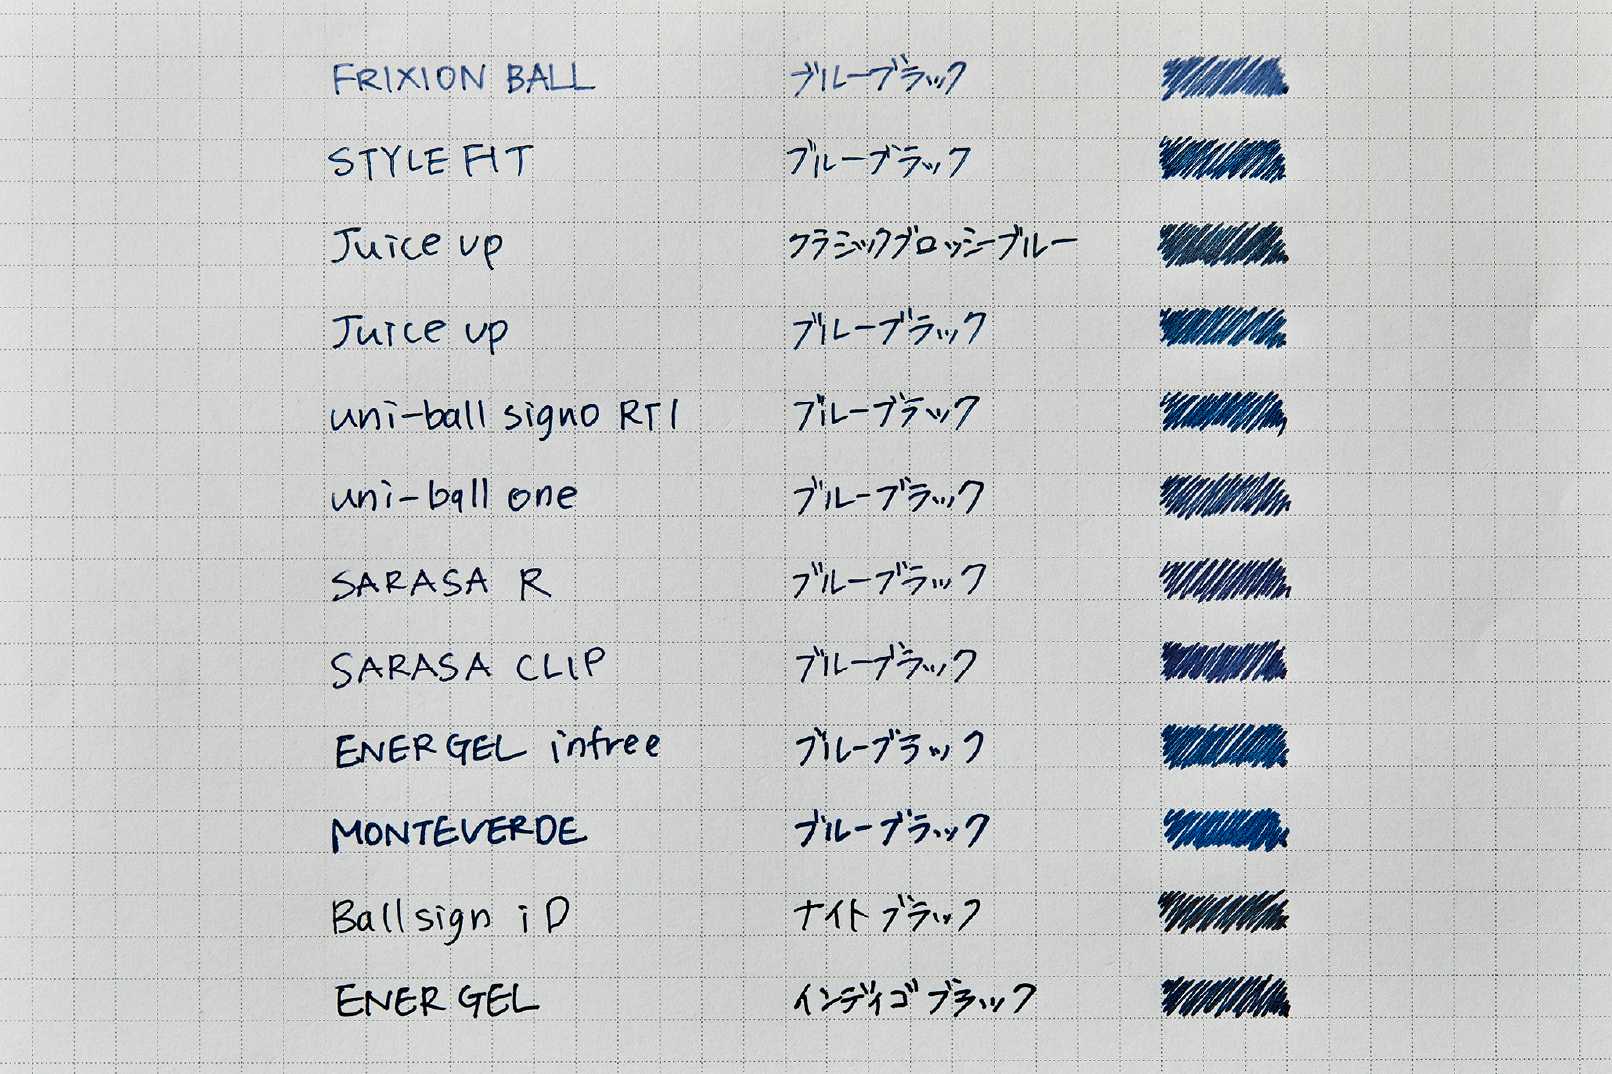 FRIXION BALL ブルーブラック
STYLE FIT ブルーブラック
Juice up クラシックグロッシーブルー
Juice up ブルーブラック
uni-ball signo RT1 ブルーブラック
uni-ball one ブルーブラック
SARASA R ブルーブラック
SARASA CLIP ブルーブラック
ENERGEL infree ブルーブラック
MONTEVERDE ブルーブラック
Ballsign iD ナイトブラック
ENERGEL インディゴブラック